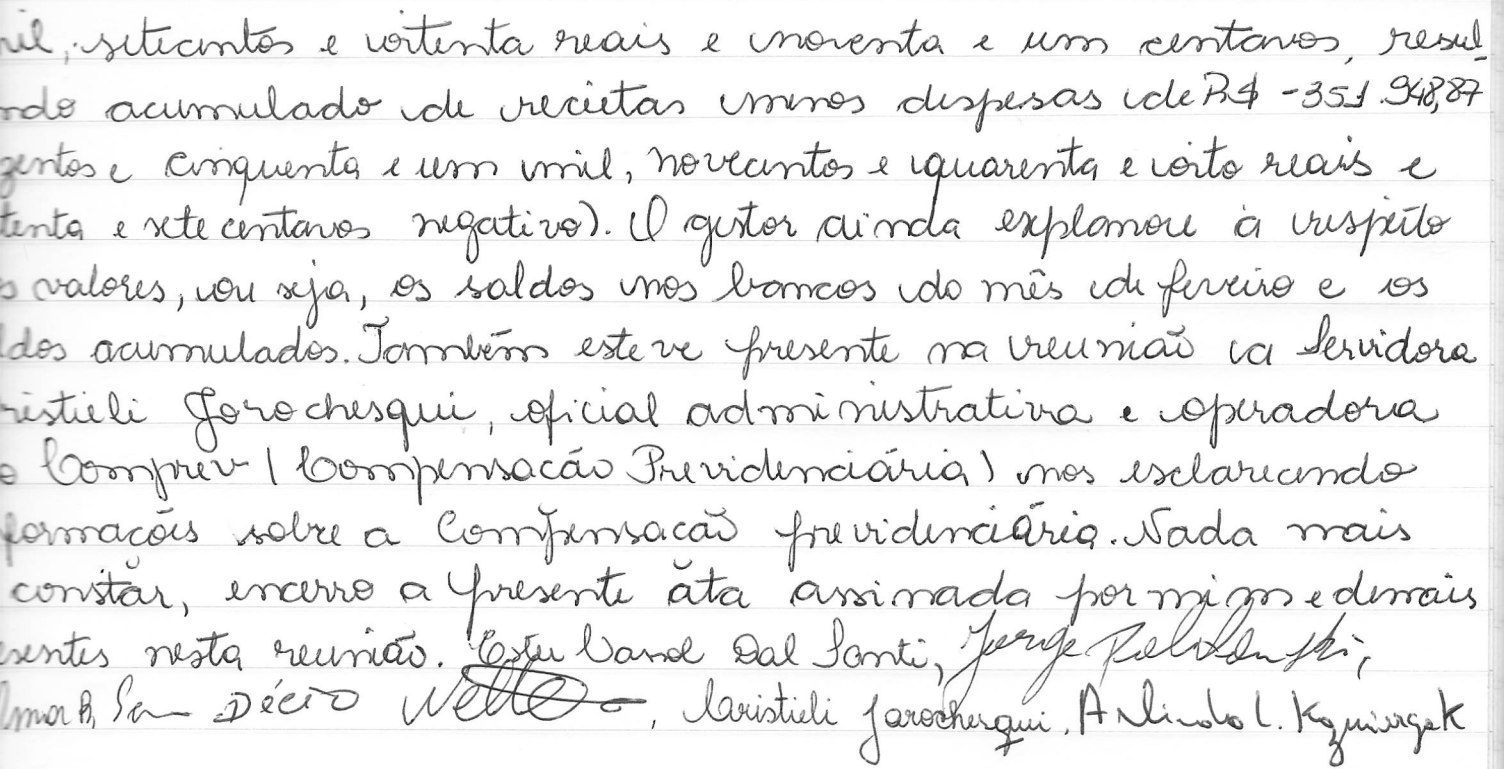 il, setecentos e oitenta reais e noventa e um centavos, resul
ndo acumulado de receitas menos despesas de R$ -351.948,87
zentos e cinquenta e um mil, novecentos e quarenta e oito reais e
tenta e sete centavos negativo). O gestor ainda explanou à respeito
s valores, ou seja, os saldos nos bancos do mês de fevreiro e os
dos acumulados. Também esteve presente na reunião a Servidora
ristieli Jorochesqui, oficial administrativa e operadora
o Comprev (Compensacão Previdenciária) nos esclarecendo
formacões sobre a Compensacão previdenciária. Nada mais
constar, encerro a presente ata assinada por mim e demais
sentes nesta reunião. Dal Santi, Jorge
Décio, Caristieli Jarochesqui, Arlindo L.